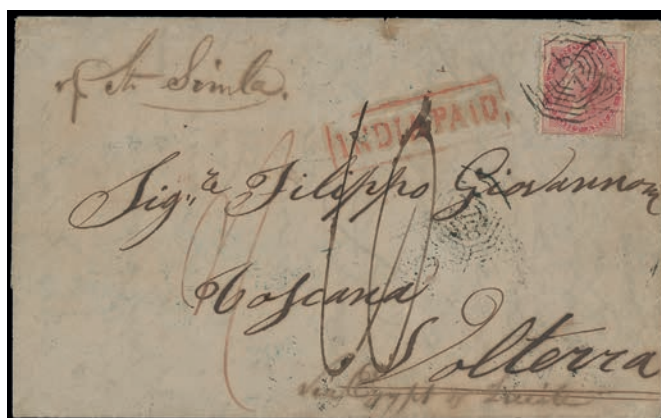 pr Str Simla.
INDIA PAID
Sigre Filippo Giovannoni
Toscana
Volterra
via Egypt & Trieste